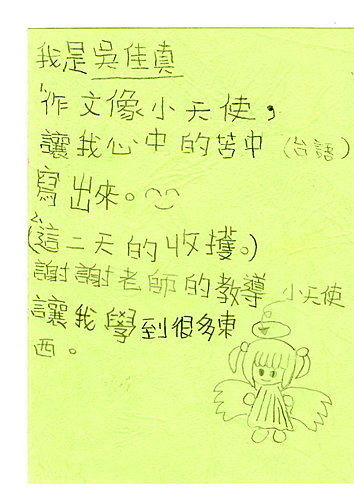 我是吳佳真
作文像小天使，
讓我心中的苦中（台語）
寫出來。
（這二天的收穫。）
謝謝老師的教導
讓我學到很多東
西。
小天使